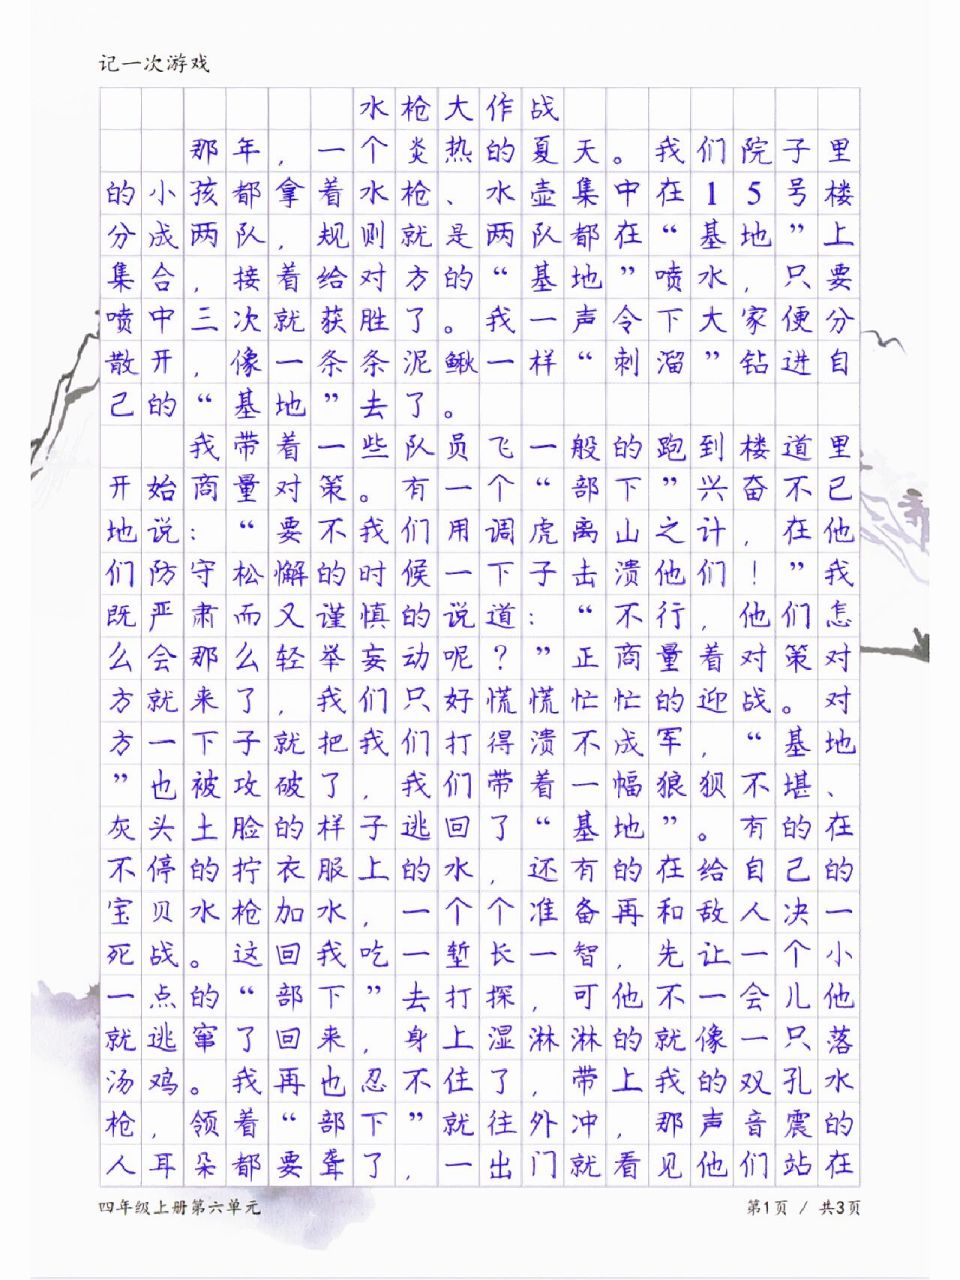 记一次游戏
水枪大作战
那年，一个炎热的夏天。我们院子里
的小孩都拿着水枪、水壶集中在15号楼
分成两队，规则就是两队都在“基地”上
集合，接着给对方的“基地”喷水，只要
喷中三次就获胜了。我一声令下大家便分
散开，像一条条泥鳅一样“刺溜”钻进自
己的“基地”去了。
我带着一些队员飞一般的跑到楼道里
开始商量对策。有一个“部下”兴奋不已
地说：“要不我们用调虎离山之计，在他
们防守松懈的时候一下子击溃他们！”我
既严肃而又谨慎的说道：“不行，他们怎
么会那么轻举妄动呢？”正商量着对策对
方就来了，我们只好慌慌忙忙的迎战。对
方一下子就把我们打得溃不成军，“基地
”也被攻破了，我们带着一幅狼狈不堪、
灰头土脸的样子逃回了“基地”。有的在
不停的拧衣服上的水，还有的在给自己的
宝贝水枪加水，一个个准备再和敌人决一
死战。这回我吃一堑长一智，先让一个小
一点的“部下”去打探，可他不一会儿他
就逃窜了回来，身上湿淋淋的就像一只落
汤鸡。我再也忍不住了，带上我的双孔水
枪，领着“部下”就往外冲，那声音震的
人耳朵都要聋了，一出门就看见他们站在
四年级上册第六单元
第1页 / 共3页